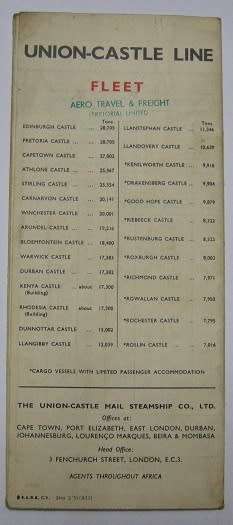 UNION-CASTLE LINE
FLEET
AERO TRAVEL & FREIGHT
LIMITED
Tons
EDINBURGH CASTLE ... 28,705
PRETORIA CASTLE ... ... 28,705
CAPETOWN CASTLE ... 27,002
ATHLONE CASTLE ... 25,567
STIRLING CASTLE ... 25,554
CARNARVON CASTLE ... 20,141
WINCHESTER CASTLE ... 20,001
ARUNDEL CASTLE ... 19,216
BLOEMFONTEIN CASTLE ... 18,400
WARWICK CASTLE ... 17,383
DURBAN CASTLE ... 17,382
KENYA CASTLE about 17,300
(Building)
RHODESIA CASTLE about 17,300
(Building)
DUNNOTTAR CASTLE ... 15,002
LLANGIBBY CASTLE ... 12,039
Tons
LLANSTEPHAN CASTLE ... 11,346
LLANDOVERY CASTLE ... 10,639
*KENILWORTH CASTLE ... 9,916
*DRAKENSBERG CASTLE ... 9,904
*GOOD HOPE CASTLE ... 9,879
*RIEBEECK CASTLE ... 8,322
*RUSTENBURG CASTLE ... 8,322
*ROXBURGH CASTLE ... 8,003
*RICHMOND CASTLE ... 7,971
*ROWALLAN CASTLE ... 7,950
*ROCHESTER CASTLE ... 7,795
*ROLLIN CASTLE ... ... 7,016
*CARGO VESSELS WITH LIMITED PASSENGER ACCOMMODATION
THE UNION-CASTLE MAIL STEAMSHIP CO., LTD.
Offices at:
CAPE TOWN, PORT ELIZABETH, EAST LONDON, DURBAN,
JOHANNESBURG, LOURENÇO MARQUES, BEIRA & MOMBASA
Head Office:
3 FENCHURCH STREET, LONDON, E.C.3.
AGENTS THROUGHOUT AFRICA